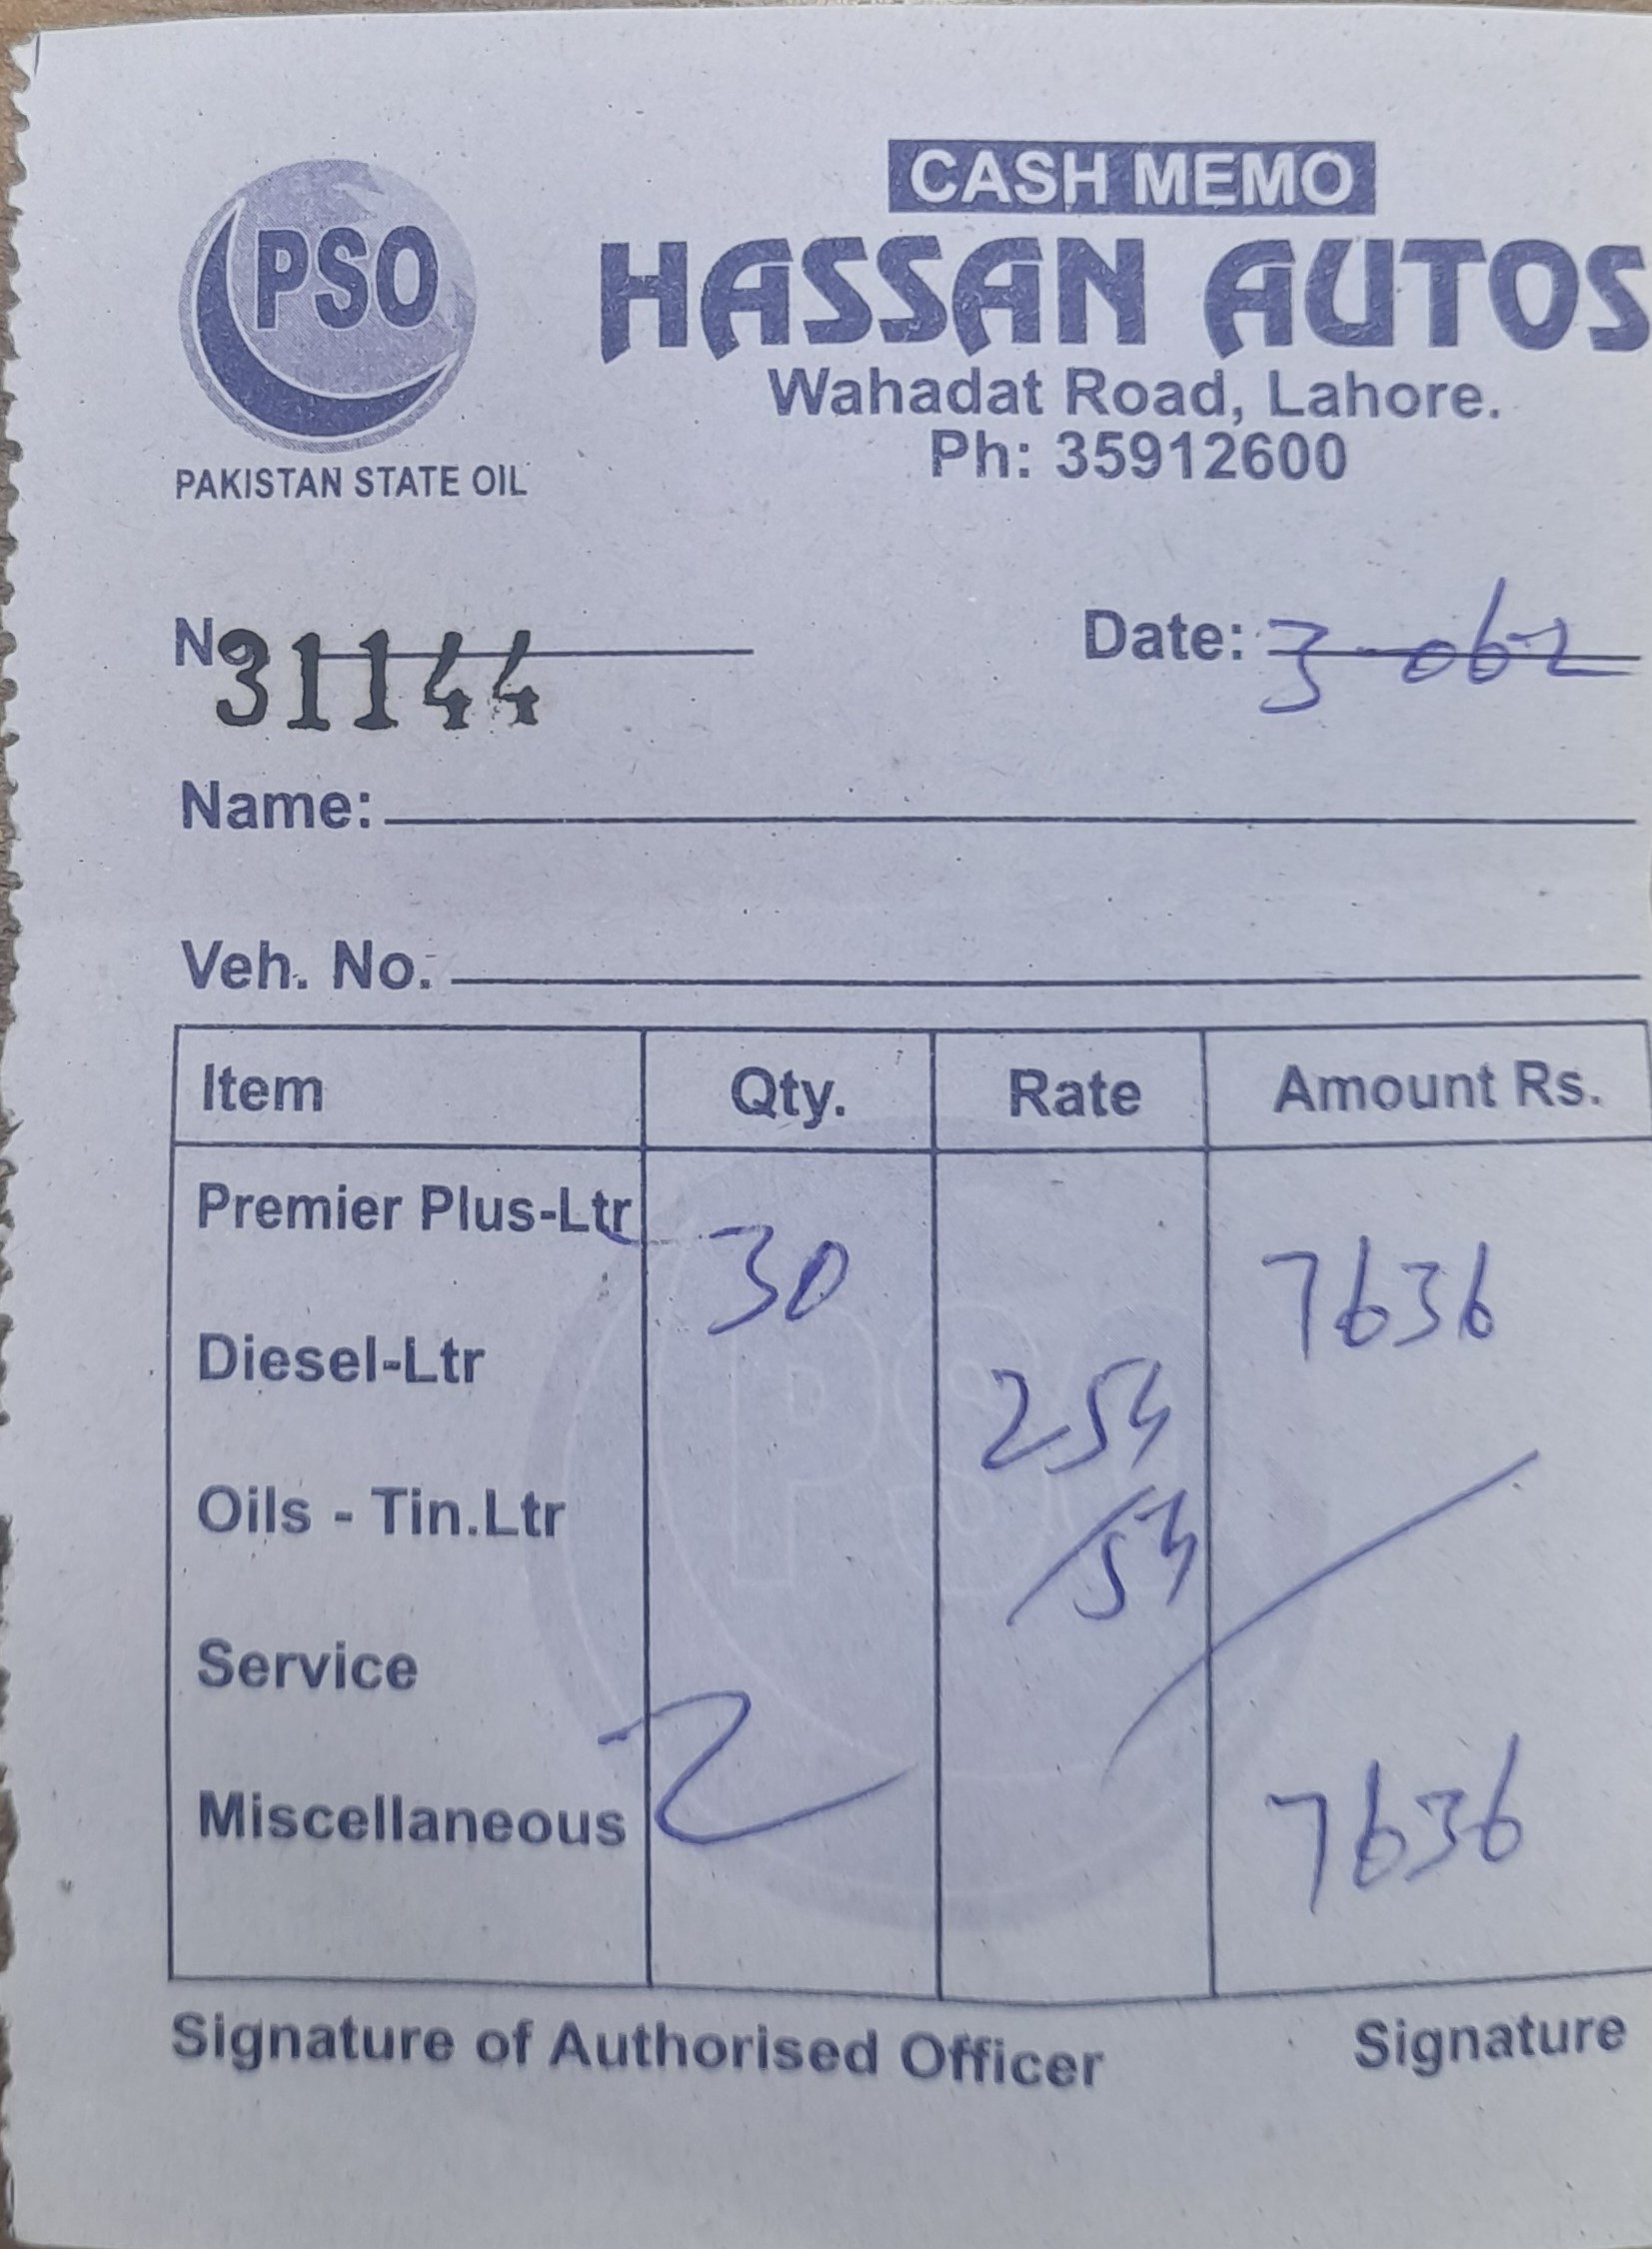 CASH MEMO
PSO
HASSAN AUTOS
Wahadat Road, Lahore.
Ph: 35912600
PAKISTAN STATE OIL
N 31144 Date: 3-062
Name:
Veh. No.
Item Qty. Rate Amount Rs.
Premier Plus-Ltr 30 7636
Diesel-Ltr 254
Oils - Tin.Ltr /54
Service
Miscellaneous 7636
Signature of Authorised Officer Signature